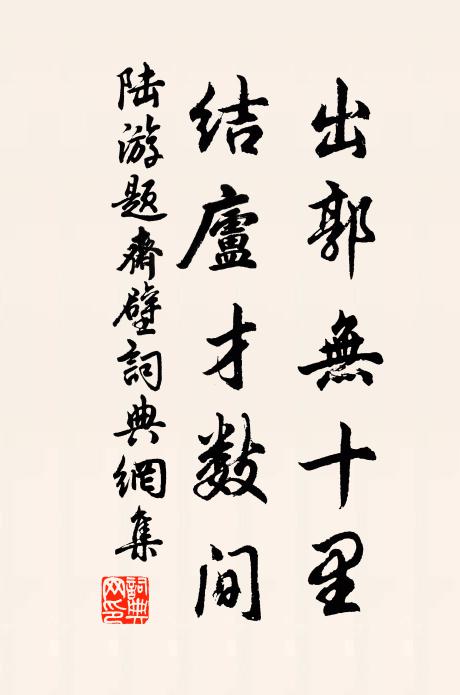 出郭無十里
结廬才数间
陆游题齋壁詞典網集
詞典網印